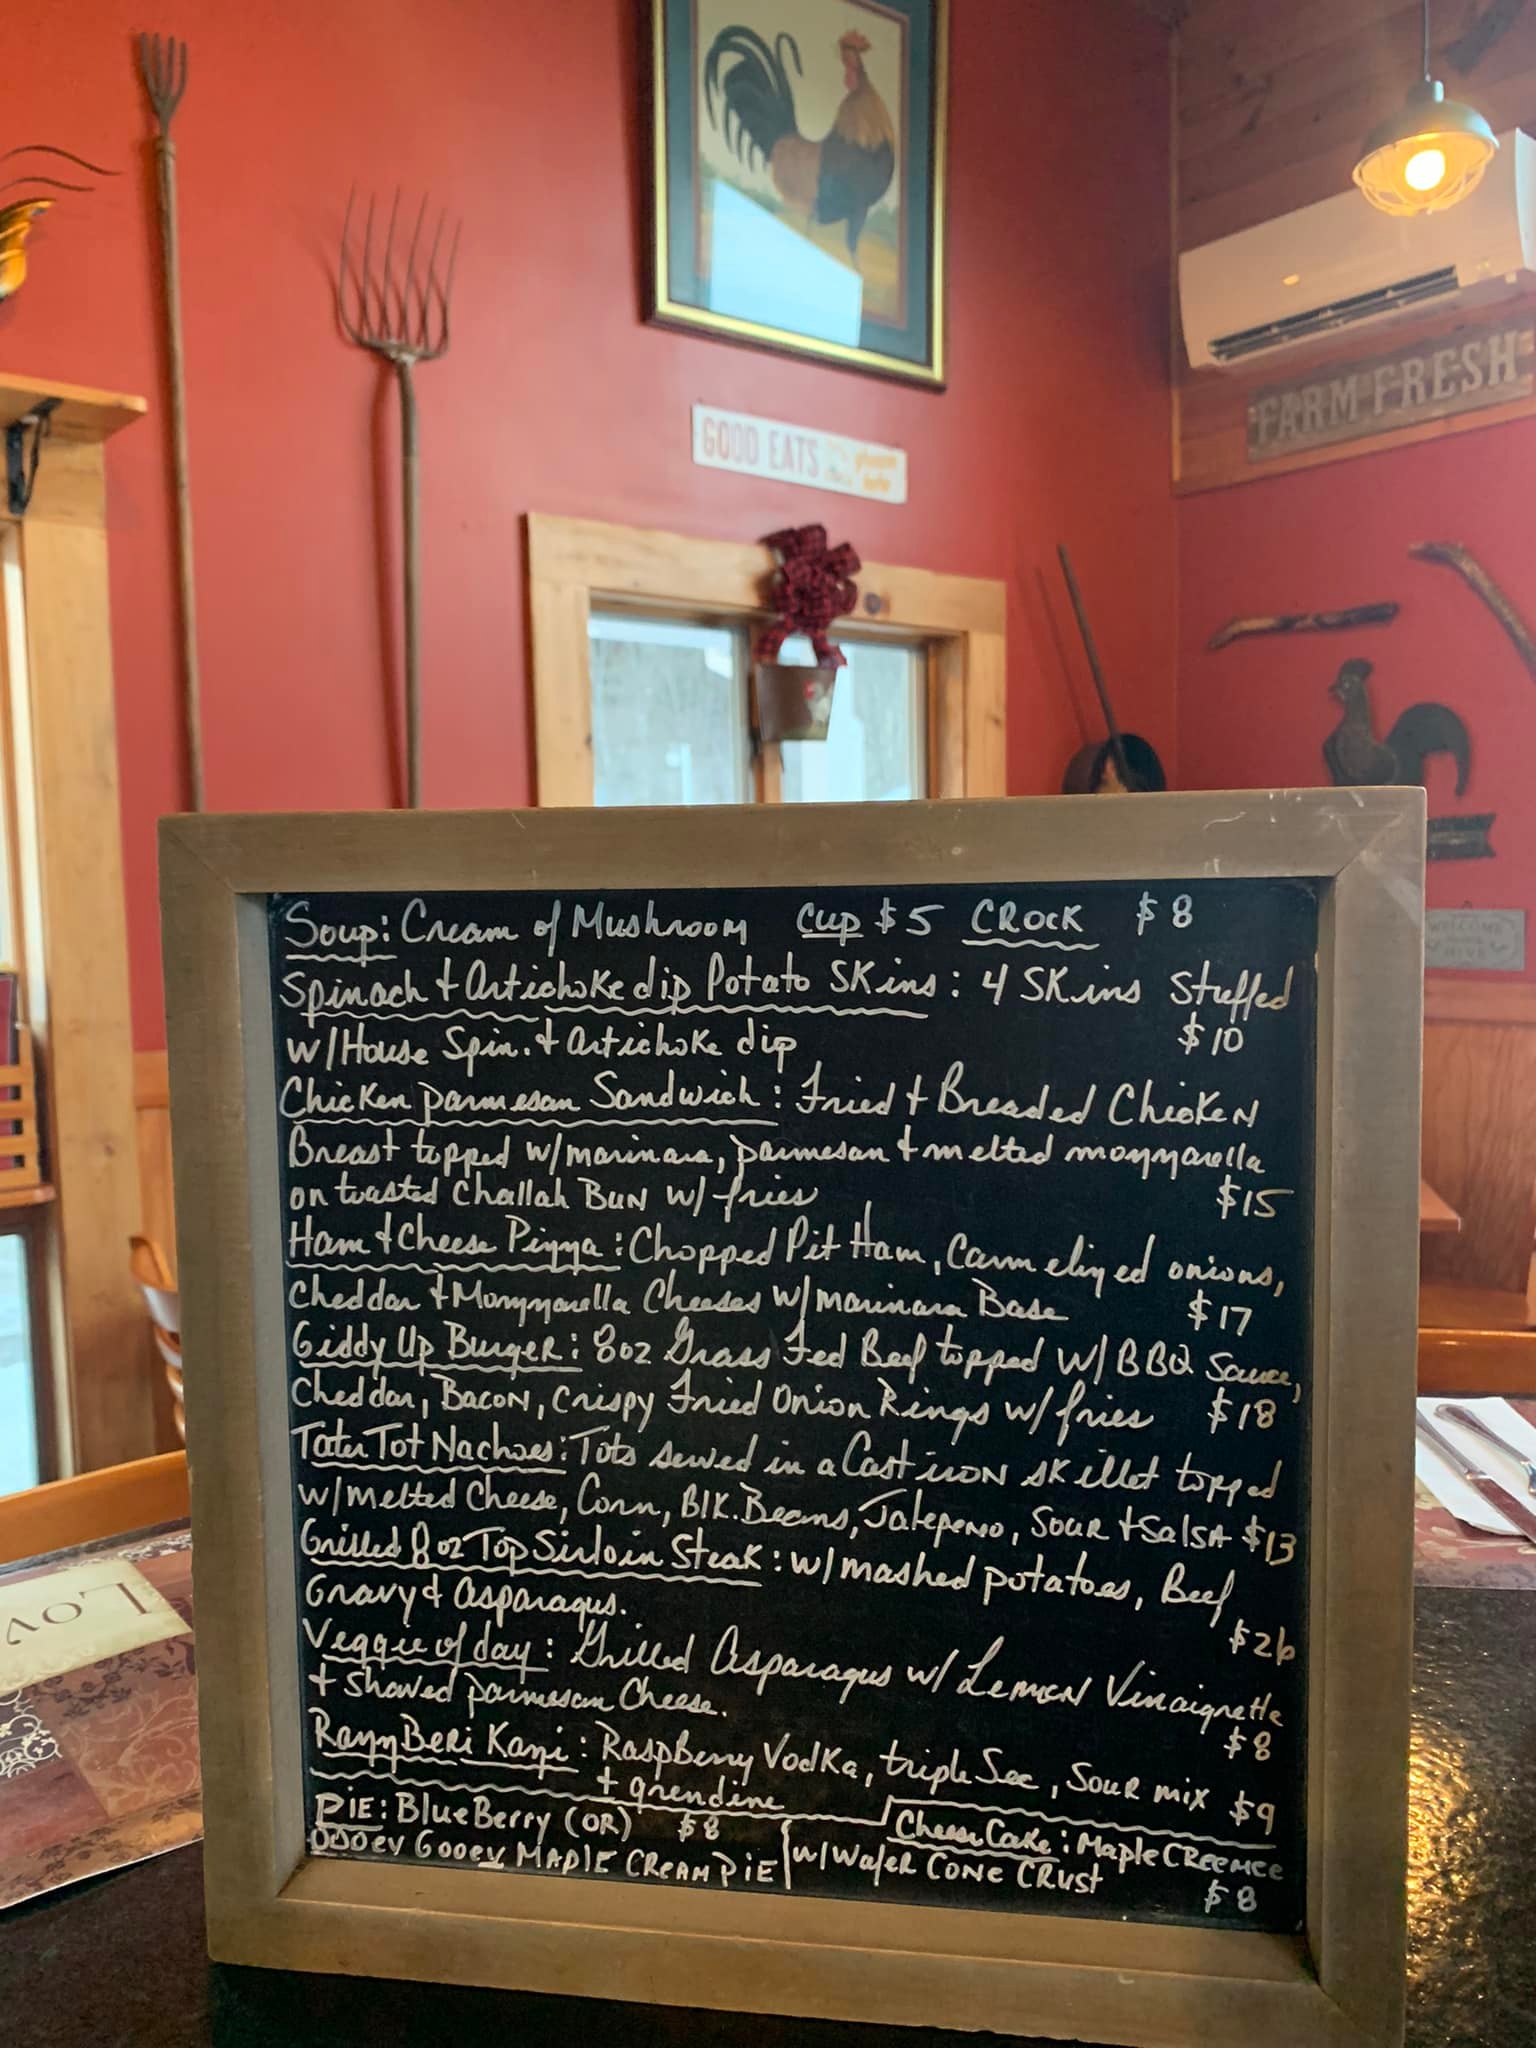 GOOD EATS
FARM FRESH
WELCOME
Soup: Cream of Mushroom Cup $5 CROCK $8
Spinach + Artichoke dip Potato Skins: 4 Skins Stuffed
w/House Spin. + Artichoke dip $10
Chicken parmesan Sandwich: Fried + Breaded Chicken
Breast topped w/marinara, parmesan + melted mozzarella
on toasted Challah Bun w/ fries $15
Ham + Cheese Pizza: Chopped Pit Ham, Carmelized onions,
Cheddar + Mozzarella Cheeses w/marinara Base $17
Giddy Up Burger: 8oz Grass Fed Beef topped w/ BBQ Sauce,
Cheddar, Bacon, Crispy Fried Onion Rings w/ fries $18
Tater Tot Nachoes: Tots served in a Cast iron skillet topped
w/melted Cheese, Corn, Blk. Beans, Jalepeno, Sour + Salsa $13
Grilled 8oz Top Sirloin Steak: w/mashed potatoes, Beef
Gravy + Asparagus. $26
Veggie of day: Grilled Asparagus w/ Lemon Vinaigrette
+ Shaved parmesan Cheese. $8
RazzBeri Kazi: Raspberry Vodka, triple Sec, Sour mix
+ grendine $9
PIE: BlueBerry (OR) $8
OOOEY GOOEY MAPLE CREAM PIE
Cheese Cake: Maple CREEMEE
w/Wafer CONE CRUST $8
LOV